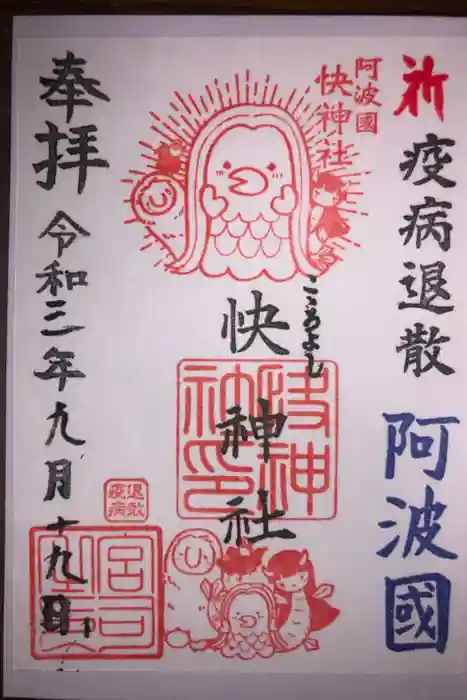 祈疫病退散
阿波國
阿波國
快神社
こころよし
快神社
快神社印
退散
疫病
奉拝
令和三年九月十九日
宮司